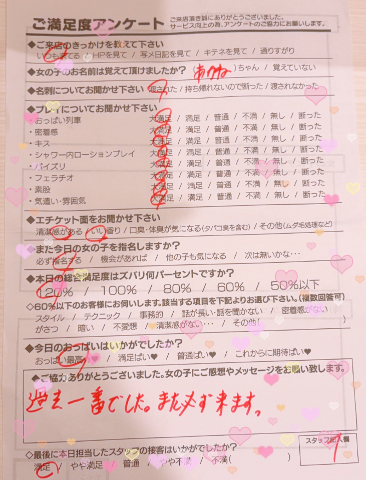 ご満足度アンケート
ご来店頂き誠にありがとうございました。
サービス向上の為、アンケートのご協力にお願いします。
◆ご来店のきっかけを教えて下さい
いつも来てる / HPを見て / 写メ日記を見て / キテネを見て / 通りすがり
◆女の子のお名前は覚えて頂けましたか? ( )ちゃん / 覚えていない
◆名刺についてお聞かせ下さい 渡された / 持ち帰れないので断った / 渡されなかった
◆プレイについてお聞かせ下さい
・おっぱい列車 大満足 / 満足 / 普通 / 不満 / 無し / 断った
・密着感 大満足 / 満足 / 普通 / 不満 / 無し / 断った
・キス 大満足 / 満足 / 普通 / 不満 / 無し / 断った
・シャワー内ローションプレイ 大満足 / 満足 / 普通 / 不満 / 無し / 断った
・パイズリ 大満足 / 満足 / 普通 / 不満 / 無し / 断った
・フェラチオ 大満足 / 満足 / 普通 / 不満 / 無し / 断った
・素股 大満足 / 満足 / 普通 / 不満 / 無し / 断った
・気遣い・雰囲気 大満足 / 満足 / 普通 / 不満 / 無し / 断った
◆エチケット面をお聞かせ下さい
清潔感がある / いい香り / 口臭・体臭が気になる(タバコ臭を含む) / その他(ムダ毛処理など)
◆また今日の女の子を指名しますか?
必ず指名する / 機会があれば / 他の子も気になる / 次は無いかな…
◆本日の総合満足度はズバリ何パーセントですか?
120% / 100% / 80% / 60% / 50%以下
◇60%以下のお客様にお伺いします。該当する項目を下記よりお選び下さい。(複数回答可)
スタイル / テクニック / 事務的 / 話が長い・話を聞かない / 密着感がない
がさつ / 暗い / 不愛想 / 清潔感がない… / その他( )
◆今日のおっぱいはいかがでしたか?
おっぱい最高♥ / 満足ぱい♥ / 普通ぱい♥ / これからに期待ぱい♥
◆ご協力ありがとうございました。女の子にご感想やメッセージをお願い致します。
過去一番でした。また必ず来ます。
◇最後に本日担当したスタッフの接客はいかがでしたか?
満足 / やや満足 / 普通 / やや不満 / 不満( )
スタッフ記入欄